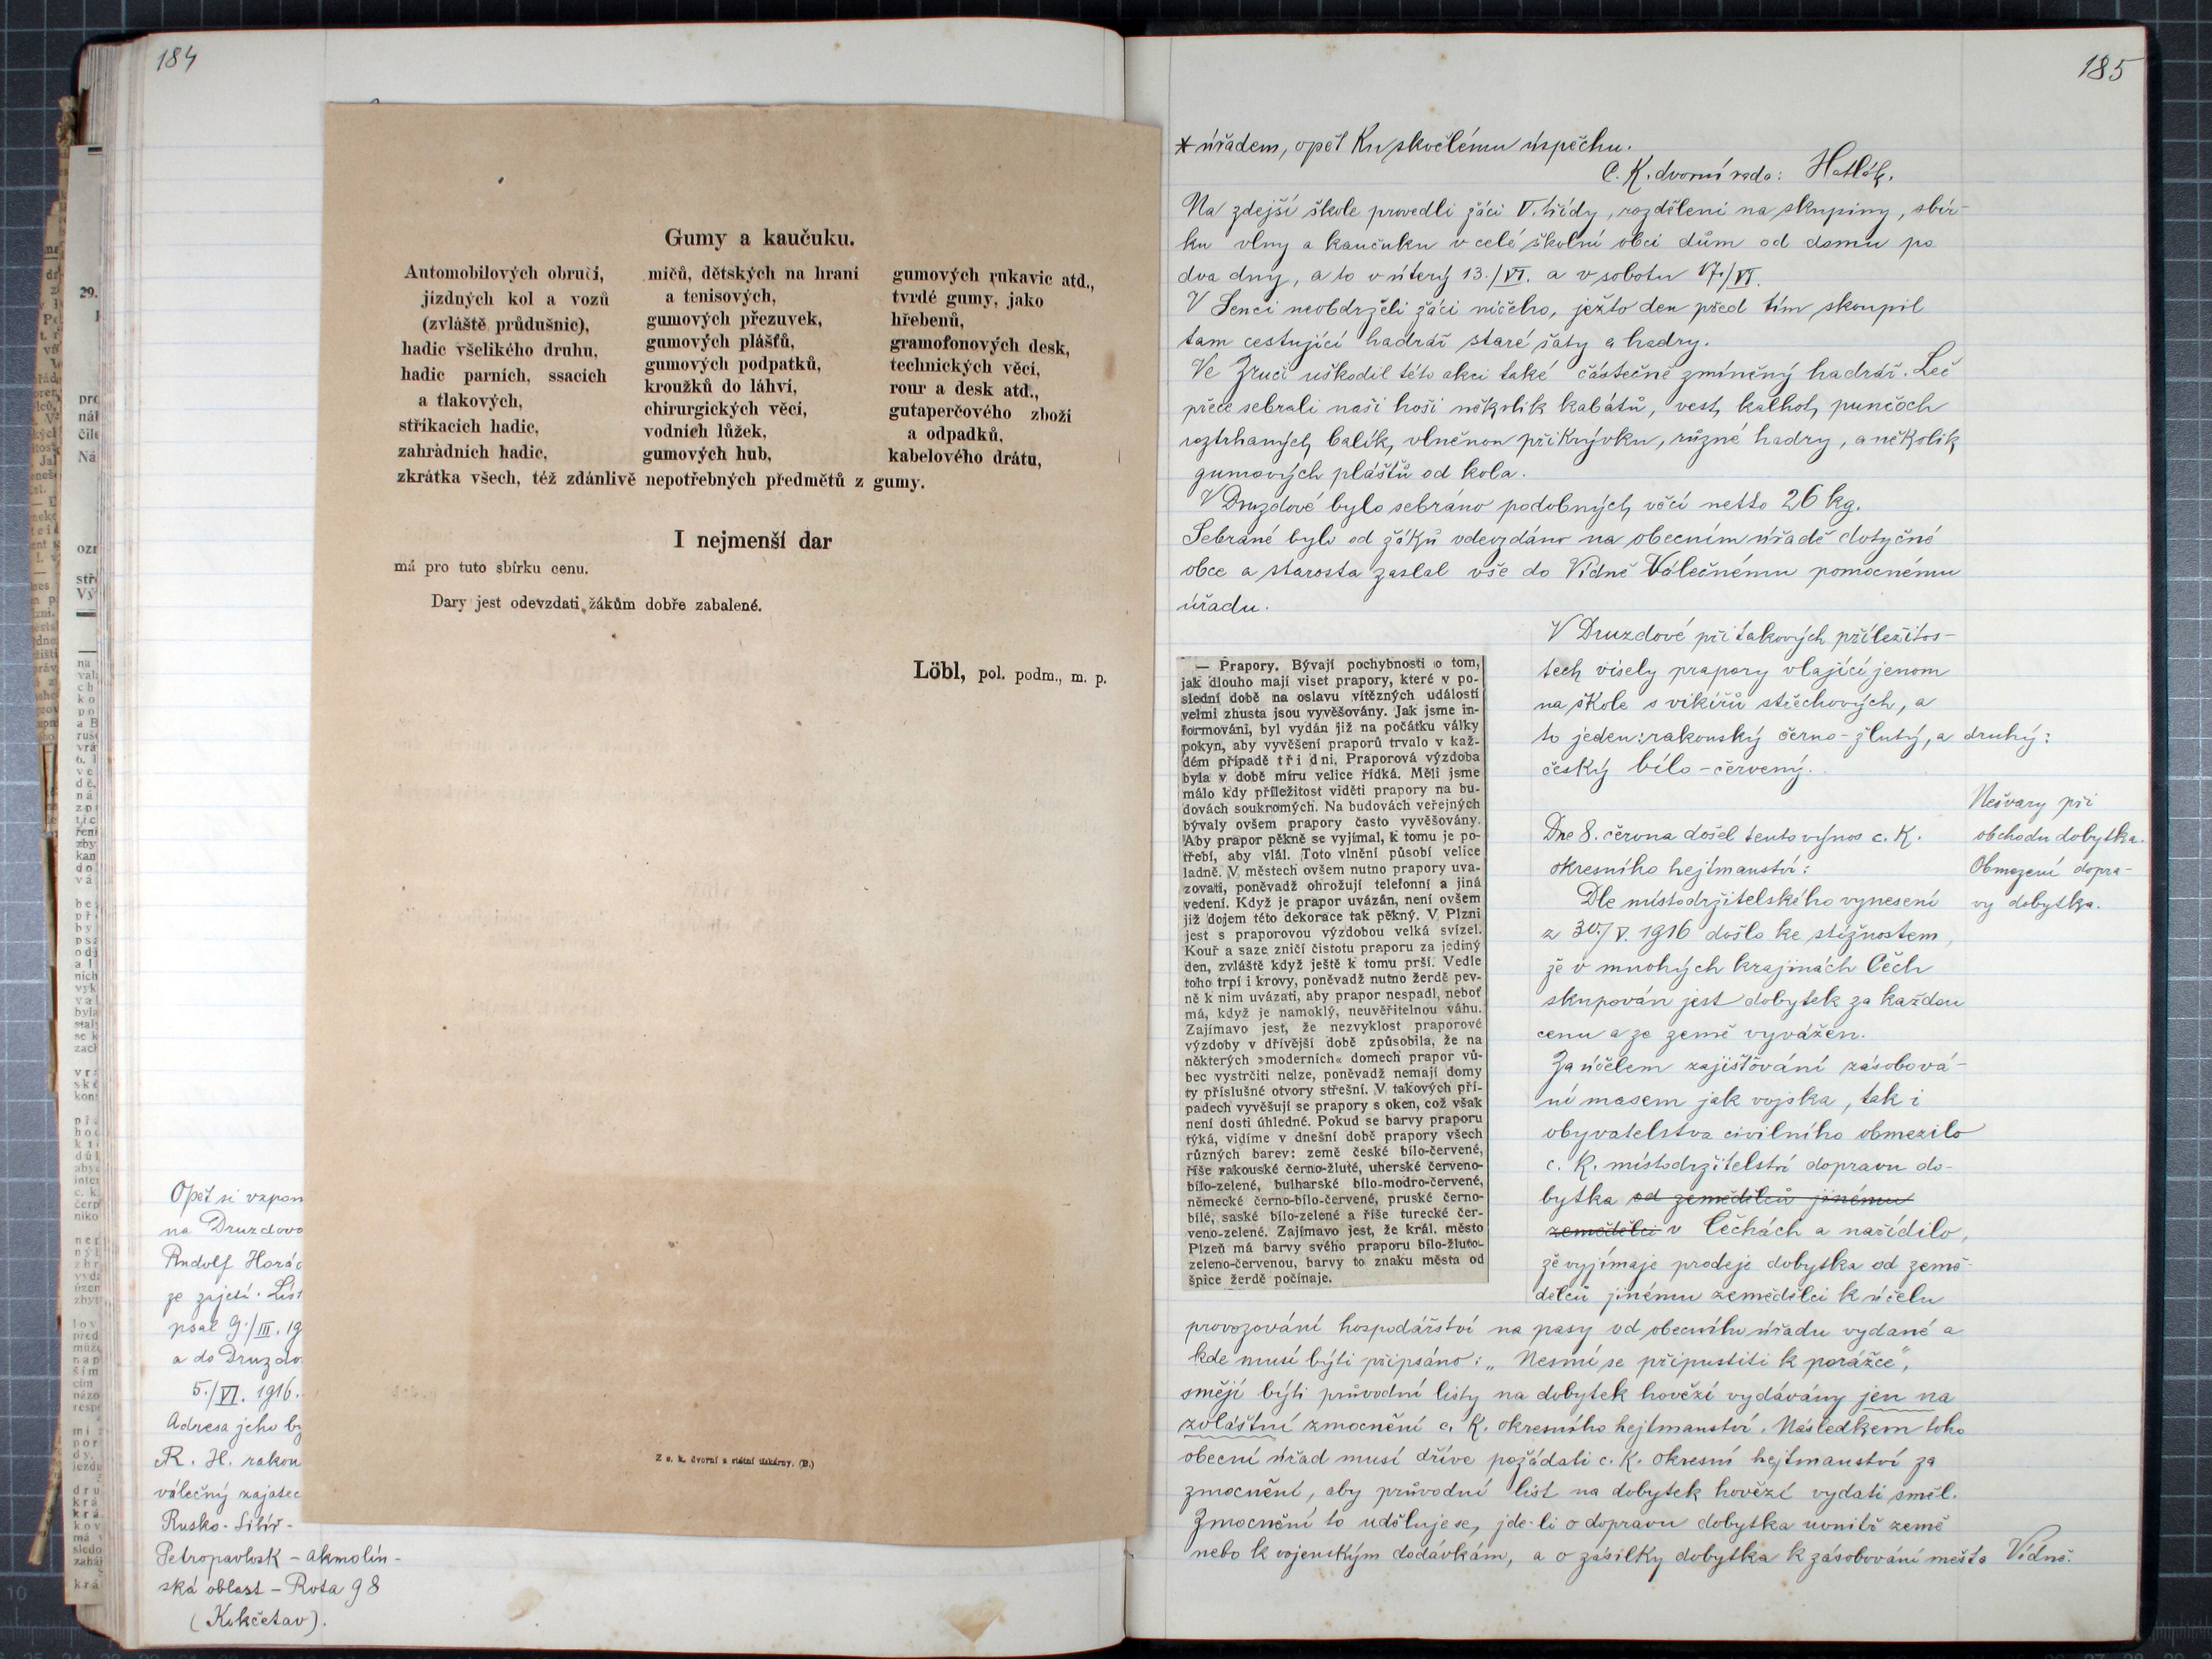 184
Gumy a kaučuku.
Automobilových obručí,
jízdných kol a vozů
(zvláště průdušnic),
hadic všelikého druhu,
hadic parních, ssacích
a tlakových,
stříkacích hadic,
zahradních hadic,
míčů, dětských na hraní
a tenisových,
gumových přezuvek,
gumových plášťů,
gumových podpatků,
kroužků do láhví,
chirurgických věcí,
vodních lůžek,
gumových hub,
gumových rukavic atd.,
tvrdé gumy, jako
hřebenů,
gramofonových desk,
technických věcí,
rour a desk atd.,
gutaperčového zboží
a odpadků,
kabelového drátu,
zkrátka všech, též zdánlivě nepotřebných předmětů z gumy.
I nejmenší dar
má pro tuto sbírku cenu.
Dary jest odevzdati žákům dobře zabalené.
Löbl, pol. podm., m. p.
Z c. k. dvorní a státní tiskárny. (B.)
Opět si vzpom
na Druzdovo
Rudolf Horáč
ze zajetí. List
psal 9./III. 19
a do Druzdo
5./VI. 1916.
Adresa jeho by
R. H. rakou
válečný zajatec
Rusko - Sibíř -
Petropavlovsk - Akmolín-
ská oblast - Rota 98
(Kokčetav).
185
* úřadem, opět ku skvělému úspěchu.
C. K. dvorní rada: Hatlák.
Na zdejší škole provedli žáci V. třídy, rozděleni na skupiny, sbír-
ku vlny a kaučuku v celé školní obci dům od domu po
dva dny, a to v úterý 13./VI. a v sobotu 17./VI.
V Senci neobdrželi žáci ničeho, ježto den před tím skoupil
tam cestující hadrář staré šaty a hadry.
Ve Zruči uškodil této akci také částečně zmíněný hadrář. Leč
přece sebrali naši hoši několik kabátů, vest, kalhot, punčoch
roztrhaných balík, vlněnou přikrývku, různé hadry, a několik
gumových plášťů od kola.
V Druzdové bylo sebráno podobných věcí netto 26 kg.
Sebrané bylo od žáků odevzdáno na obecním úřadě dotyčné
obce a starosta zaslal vše do Vídně Válečnému pomocnému
úřadu.
— Prapory. Bývají pochybnosti o tom,
jak dlouho mají viset prapory, které v po-
slední době na oslavu vítězných událostí
velmi zhusta jsou vyvěšovány. Jak jsme in-
formováni, byl vydán již na počátku války
pokyn, aby vyvěšení praporů trvalo v kaž-
dém případě tři dni. Praporová výzdoba
byla v době míru velice řídká. Měli jsme
málo kdy příležitost viděti prapory na bu-
dovách soukromých. Na budovách veřejných
bývaly ovšem prapory často vyvěšovány.
Aby prapor pěkně se vyjímal, k tomu je po-
třebí, aby vlál. Toto vlnění působí velice
ladně. V městech ovšem nutno prapory uva-
zovati, poněvadž ohrožují telefonní a jiná
vedení. Když je prapor uvázán, není ovšem
již dojem této dekorace tak pěkný. V Plzni
jest s praporovou výzdobou velká svízel.
Kouř a saze zničí čistotu praporu za jediný
den, zvláště když ještě k tomu prší. Vedle
toho trpí i krovy, poněvadž nutno žerdě pev-
ně k nim uvázati, aby prapor nespadl, neboť
má, když je namoklý, neuvěřitelnou váhu.
Zajímavo jest, že nezvyklost praporové
výzdoby v dřívější době způsobila, že na
některých »moderních« domech prapor vů-
bec vystrčiti nelze, poněvadž nemají domy
ty příslušné otvory střešní. V takových pří-
padech vyvěšují se prapory s oken, což však
není dosti úhledné. Pokud se barvy praporu
týká, vidíme v dnešní době prapory všech
různých barev: země české bílo-červené,
říše rakouské černo-žluté, uherské červeno-
bílo-zelené, bulharské bílo-modro-červené,
německé černo-bílo-červené, pruské černo-
bílé, saské bílo-zelené a říše turecké čer-
veno-zelené. Zajímavo jest, že král. město
Plzeň má barvy svého praporu bílo-žluto-
zeleno-červenou, barvy to znaku města od
špice žerdě počínaje.
V Druzdové při takových příležitos-
tech visely prapory vlající jenom
na škole s vikýřů střechových, a
to jeden: rakouský černo-žlutý, a druhý:
český bílo-červený.
Nešvary při
obchodu dobytka.
Obmezení dopra-
vy dobytka.
Dne 8. června došel tento výnos c. K.
okresního hejtmanství:
Dle místodržitelského vynesení
z 30./V. 1916 došlo ke stížnostem,
že v mnohých krajinách Čech
skupován jest dobytek za každou
cenu a ze země vyvážen.
Za účelem zajišťování zásobová-
ní masem jak vojska, tak i
obyvatelstva civilního obmezilo
c. K. místodržitelství dopravu do-
bytka od zemědělců jinému
zemědělci v Čechách a nařídilo,
že vyjímaje prodeje dobytka od země-
dělců jinému zemědělci k účelu
provozování hospodářství na pasy od obecního úřadu vydané a
kde musí býti připsáno: „Nesmí se připustiti k porážce",
smějí býti průvodní listy na dobytek hovězí vydávány jen na
zvláštní zmocnění c. K. okresního hejtmanství. Následkem toho
obecní úřad musí dříve požádati c. K. okresní hejtmanství za
zmocnění, aby průvodní list na dobytek hovězí vydati směl.
Zmocnění to uděluje se, jde-li o dopravu dobytka uvnitř země
nebo k vojenským dodávkám, a o zásilky dobytka k zásobování města Vídně.